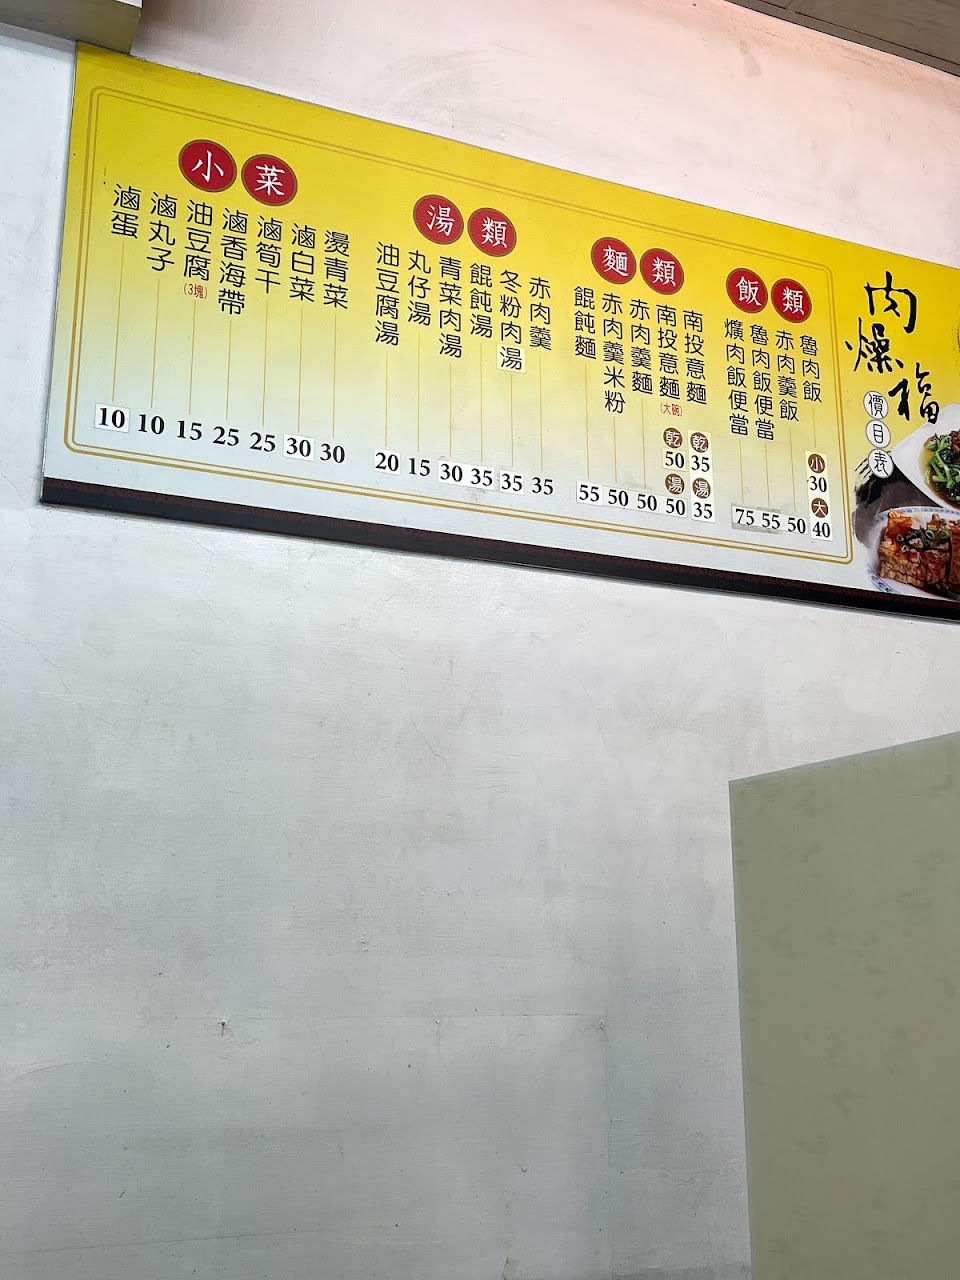 肉燥福
價目表
飯類
魯肉飯
小
30
大
40
赤肉羹飯
50
魯肉飯便當
55
爌肉飯便當
75
麵類
南投意麵
乾
35
湯
35
南投意麵(大碗)
乾
50
湯
50
赤肉羹麵
50
赤肉羹米粉
50
餛飩麵
55
湯類
赤肉羹
35
冬粉肉湯
35
餛飩湯
35
青菜肉湯
30
丸仔湯
15
油豆腐湯
20
小菜
燙青菜
30
滷白菜
30
滷筍干
25
滷香海帶
25
油豆腐(3塊)
15
滷丸子
10
滷蛋
10